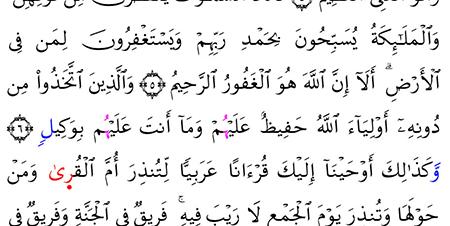 وَٱلْمَلَـٰٓئِكَةُ يُسَبِّحُونَ بِحَمْدِ رَبِّهِمْ وَيَسْتَغْفِرُونَ لِمَن فِى
ٱلْأَرْضِ ۗ أَلَآ إِنَّ ٱللَّهَ هُوَ ٱلْغَفُورُ ٱلرَّحِيمُ ۝٥ وَٱلَّذِينَ ٱتَّخَذُوا۟ مِن
دُونِهِۦٓ أَوْلِيَآءَ ٱللَّهُ حَفِيظٌ عَلَيْهُم وَمَآ أَنتَ عَلَيْهُم بِوَكِيلٍ ۝٦
وَكَذَٰلِكَ أَوْحَيْنَآ إِلَيْكَ قُرْءَانًا عَرَبِيًّا لِّتُنذِرَ أُمَّ ٱلْقُرَىٰ وَمَنْ
حَوْلَهَا وَتُنذِرَ يَوْمَ ٱلْجَمْعِ لَا رَيْبَ فِيهِ ۚ فَرِيقٌ فِى ٱلْجَنَّةِ وَفَرِيقٌ فِى